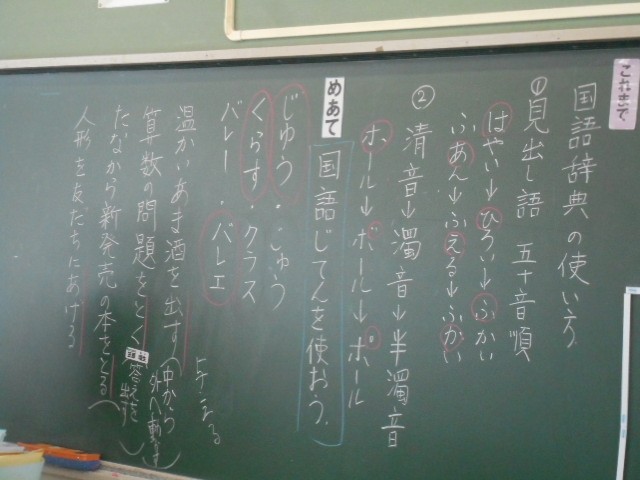 これまで
国語辞典の使い方
①見出し語 五十音順
はやい→ひろい→ふかい
ふあん→ふえる→ふかい
② 清音→濁音→半濁音
ホール→ボール→ポール
めあて
国語じてんを使おう。
じゅう・じゅう
くらす・クラス
バレー・バレエ
与える
温かいあま酒を出す(中から外へ動かす)
算数の問題をとく(答えを出す)
たなから新発売の本をとる(
人形を友だちにあげる